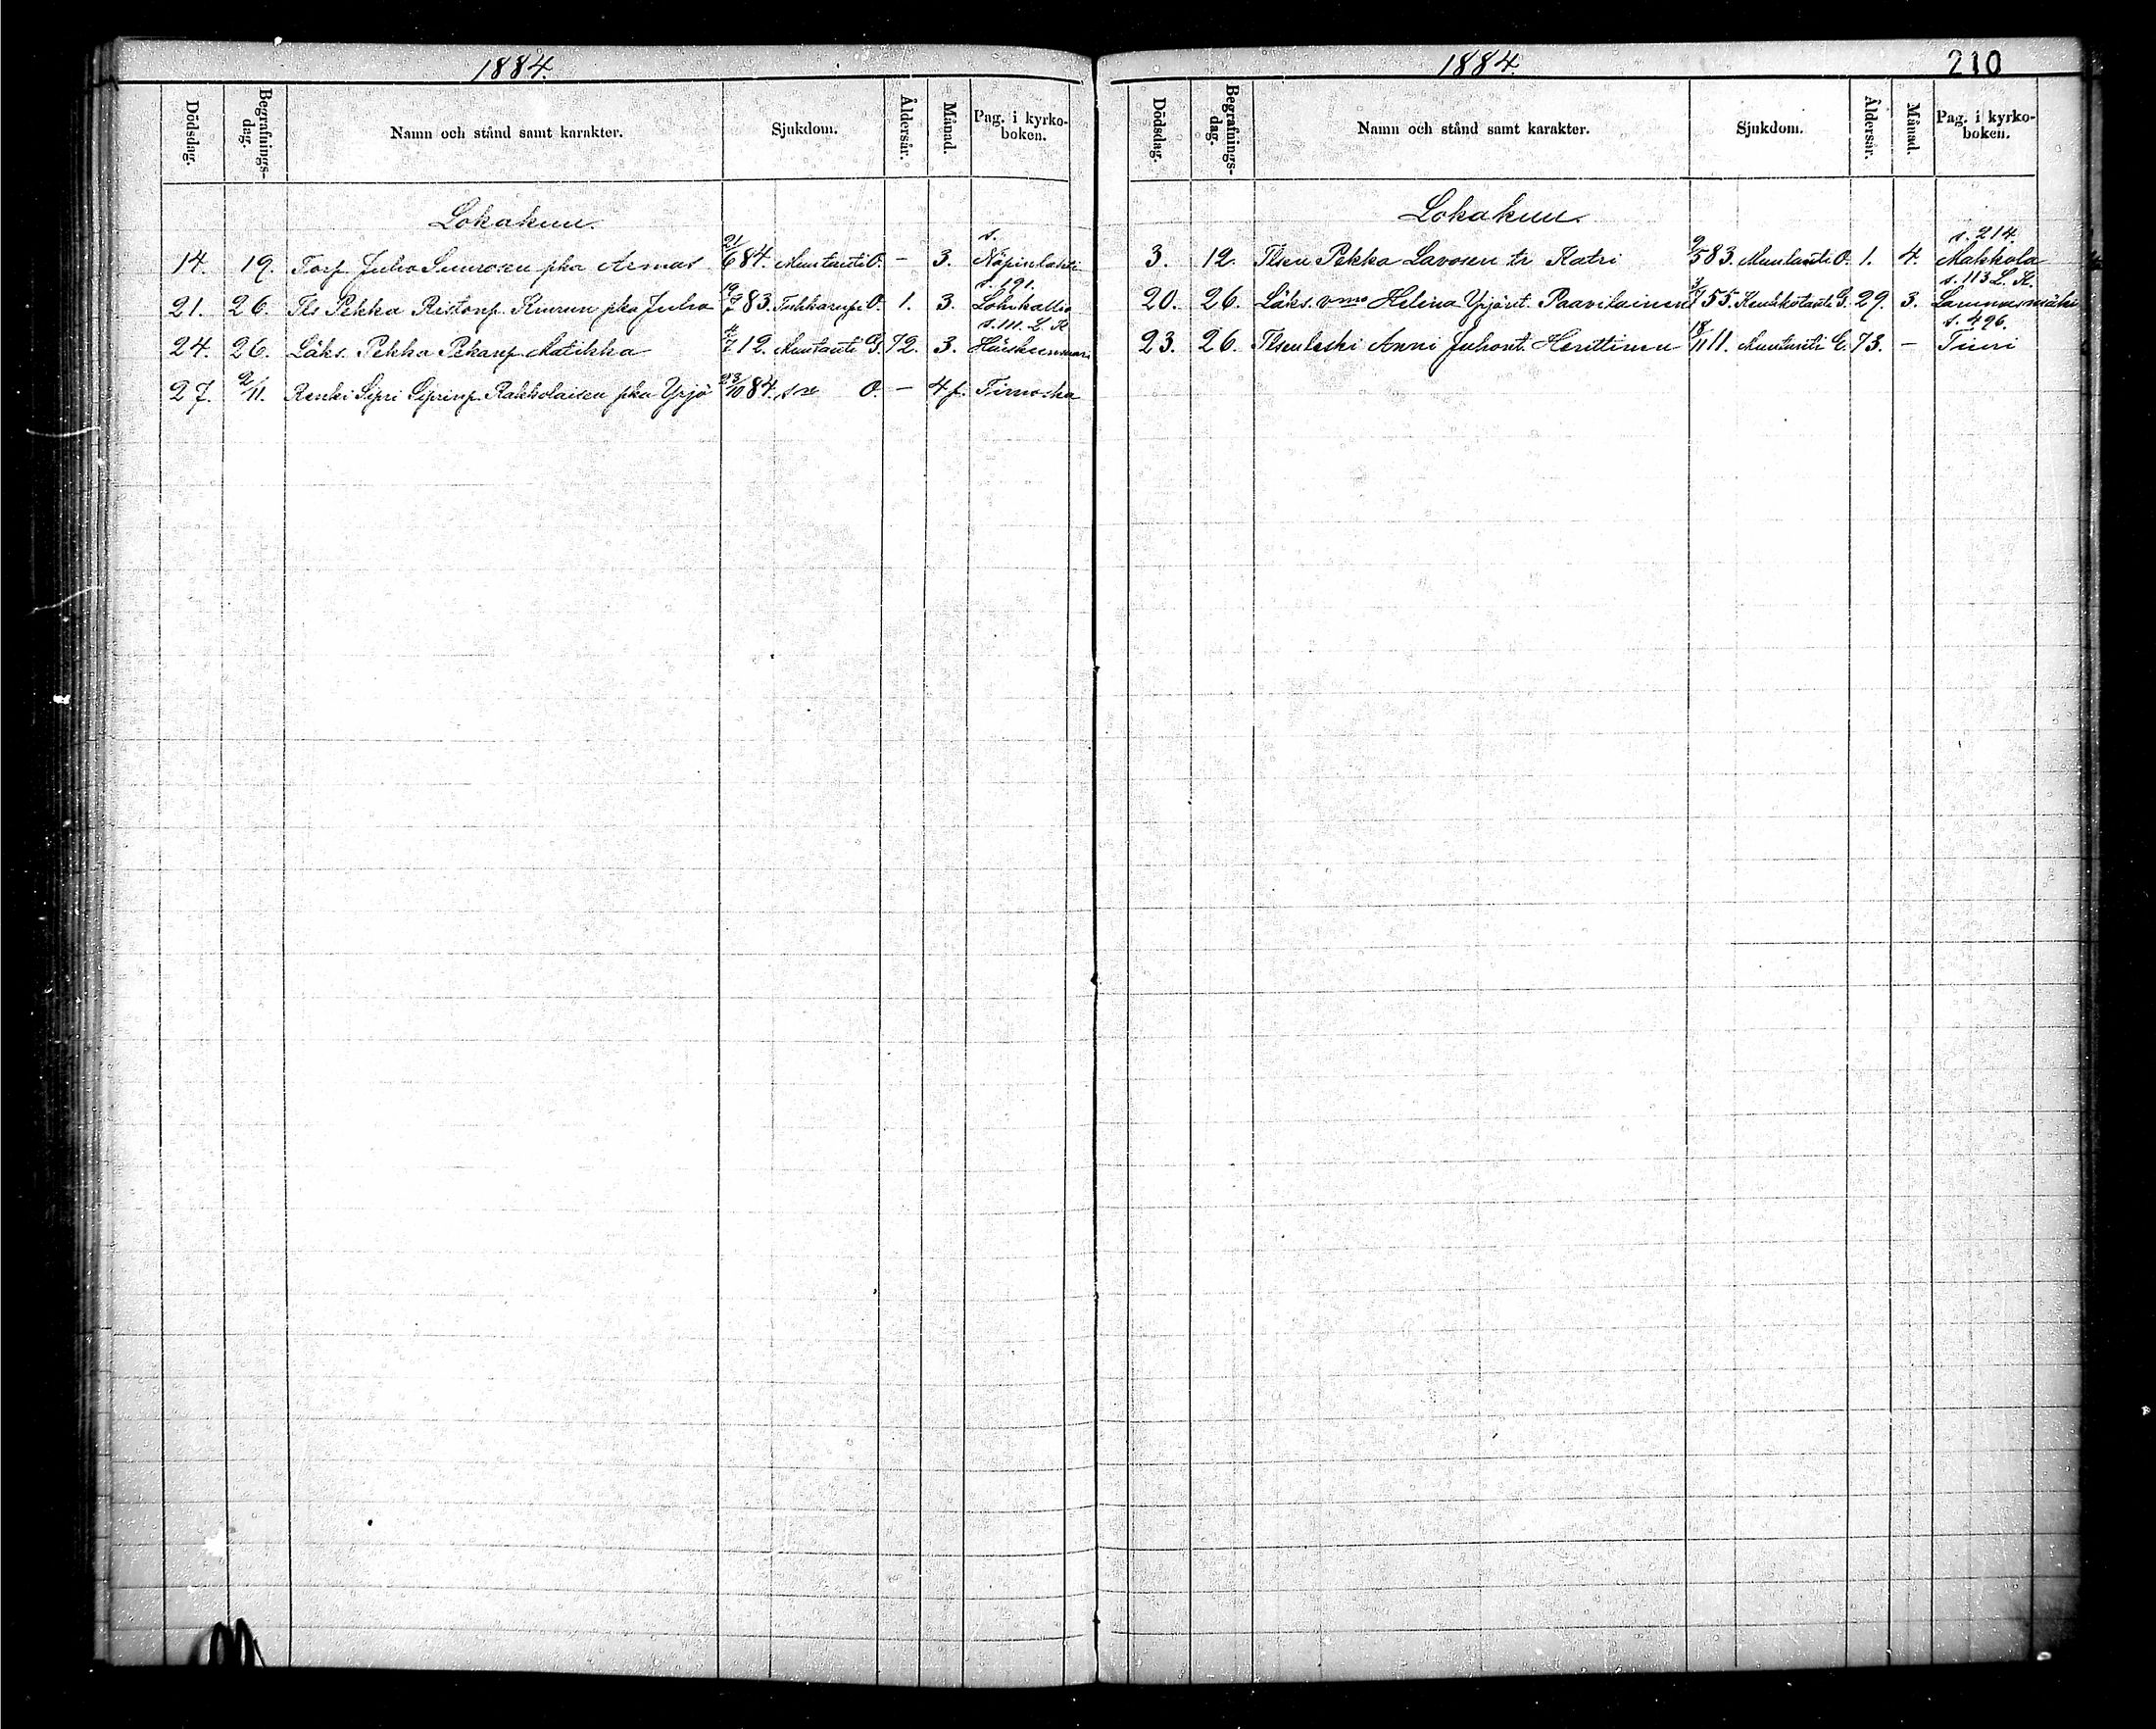 1884.
Dödsdag. Begrafnings-dag. Namn och stånd samt karakter. Sjukdom. Åldersår. Månad. Pag. i kyrko-boken.
Lokakuu.
s.
14. 19. Torp. Juho Suurosen pka Armas 21/6 84. Muu tauti O. — 3. Näpinlahti
s. 191.
21. 26. Tls Pekka Ristonp. Kinnun pka Juho 19/7 83. Tuhkarupi O. 1. 3. Lohikallio
s. 111. L. K.
24. 26. Läks. Pekka Pekanp. Matikka 4/7 12. Muu tauti G. 72. 3. Häiskenmäri
27. 2/11. Renki Sipri Siprinp. Rakkolaisen pka Yrjö 23/10 84. sm O. — 4 p. Timoska
1884. 210
Dödsdag. Begrafnings-dag. Namn och stånd samt karakter. Sjukdom. Åldersår. Månad. Pag. i kyrko-boken.
Lokakuu.
s. 214.
3. 12. Tlsen Pekka Lavosen tr Katri 9/5 83. Muu tauti O. 1. 4. Makkola
s. 113 L. K.
20. 26. Läks. vmo Helena Yrjönt. Paavilainen 3/7 55. Keuhkotauti G. 29. 3. Lammasmäki
s. 496.
23. 26. Tlsen leski Anni Juhont. Herttinen 18/11 11. Muu tauti E. 73. — Tiuri